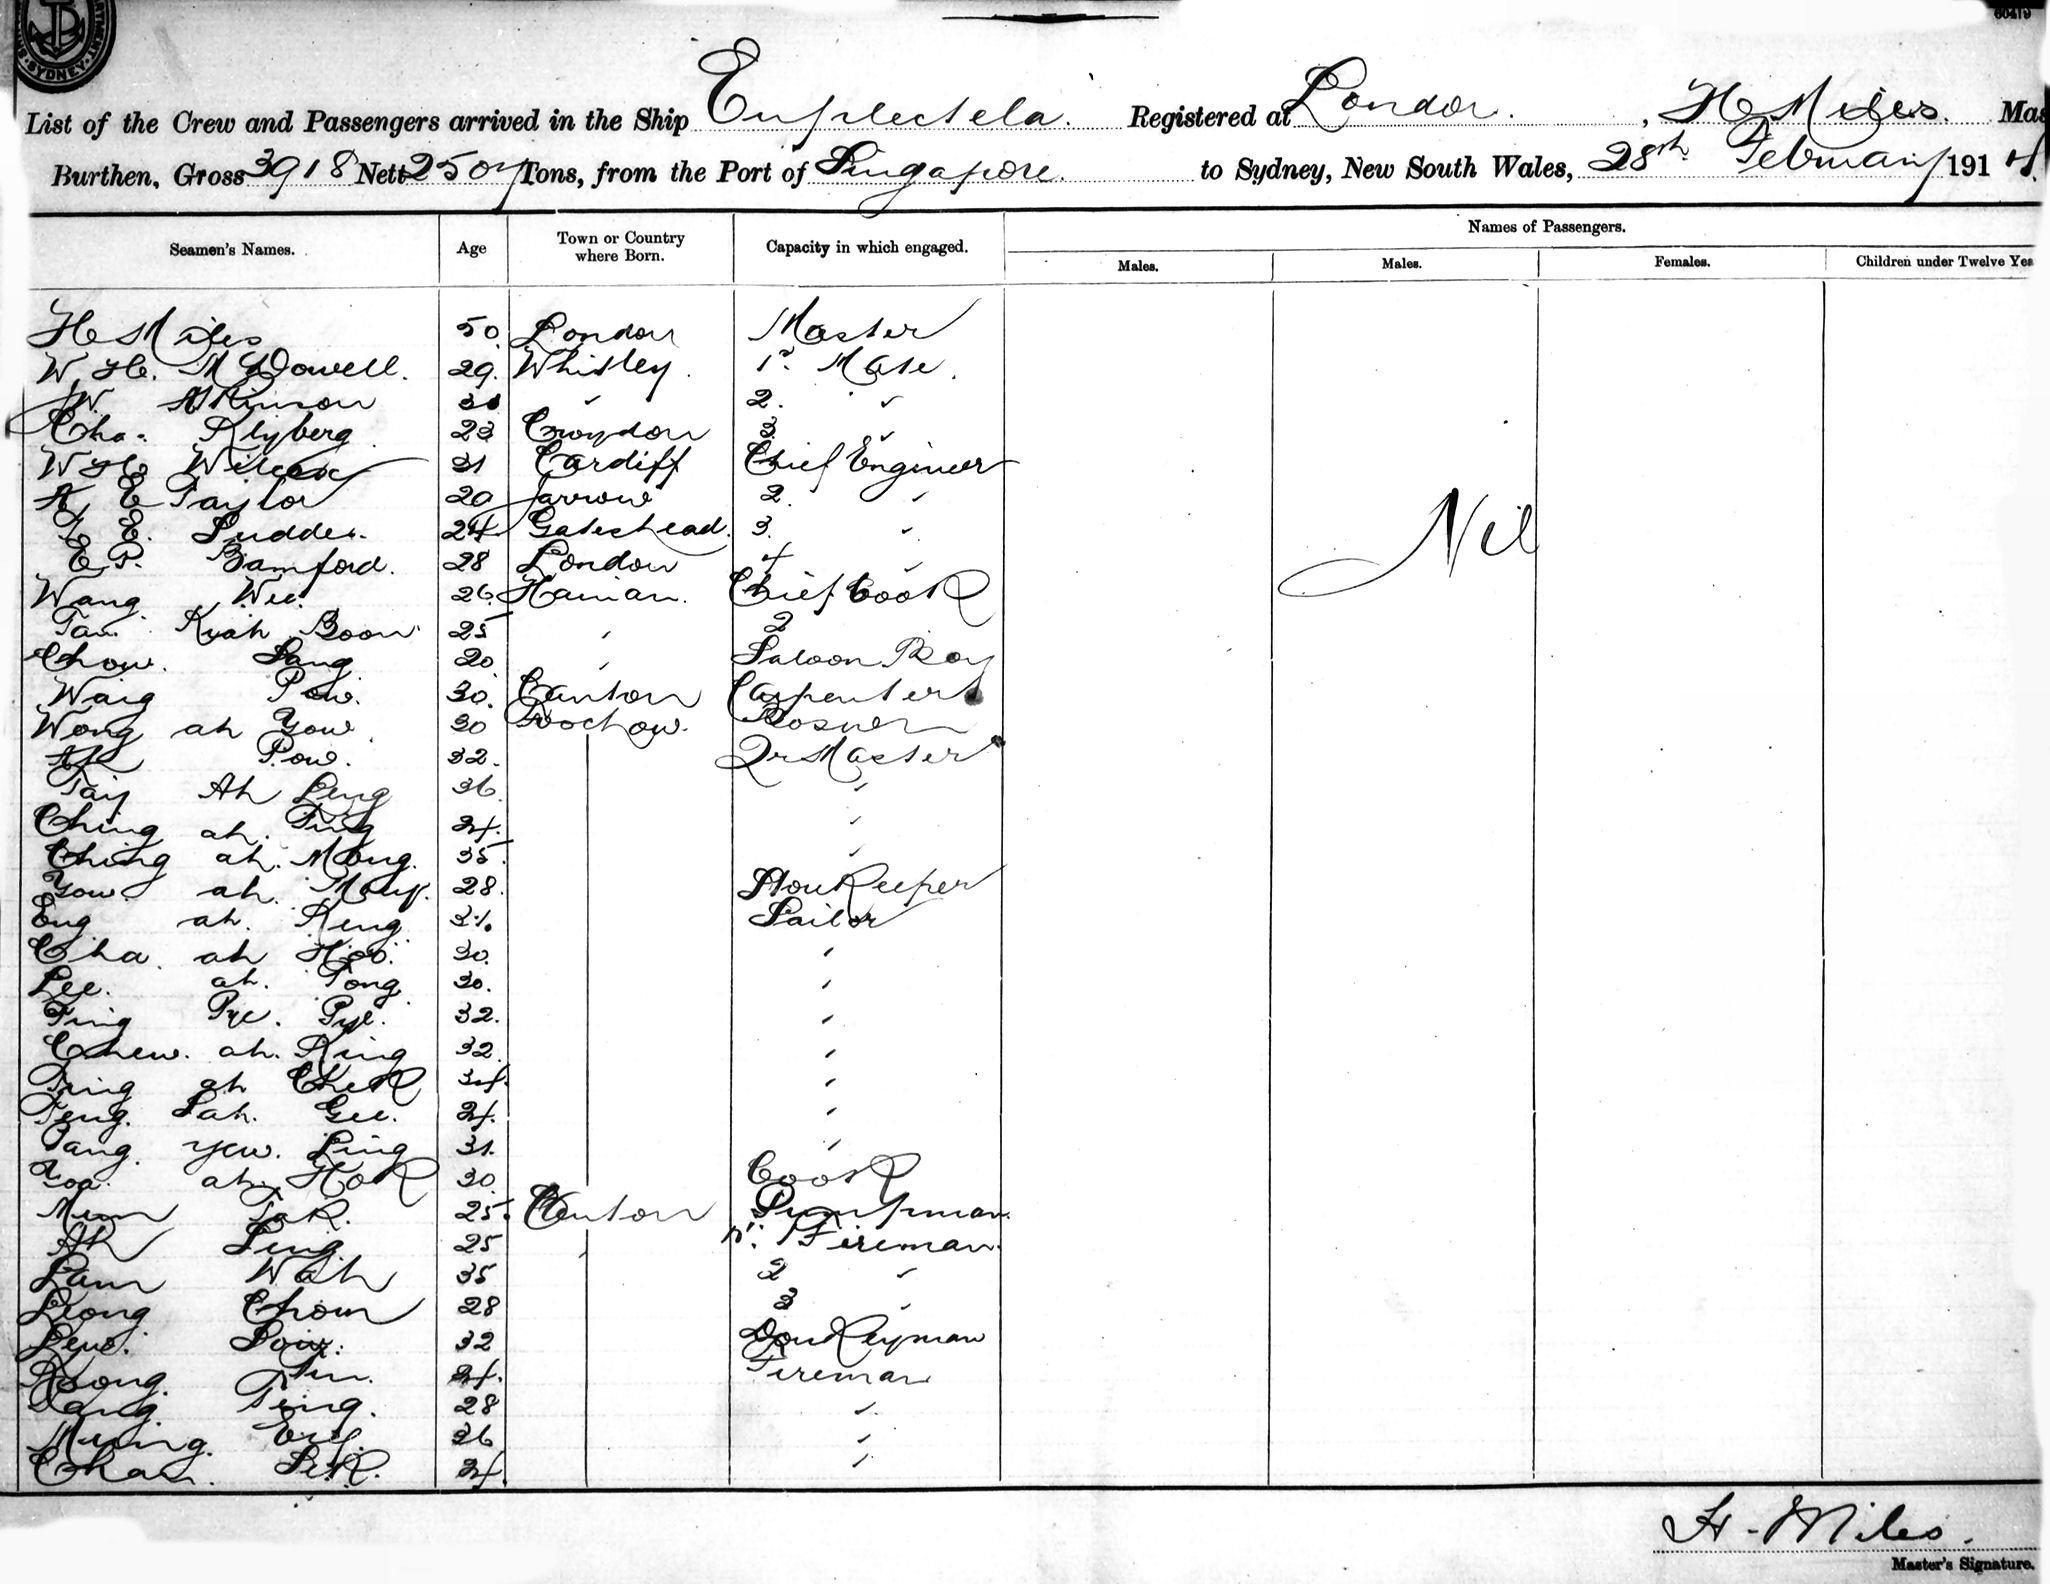 SYDNEY
60419
List of the Crew and Passengers arrived in the Ship Euplectela. Registered at London. , H Miles. Mas
Burthen, Gross 3918 Nett 2504 Tons, from the Port of Singapore. to Sydney, New South Wales, 28th February 1914.
Seamen's Names. Age Town or Country where Born. Capacity in which engaged. Names of Passengers.
Males. Males. Females. Children under Twelve Yea
H Miles 50 London Master
W. H. McDowell. 29. Whitley. 1st Mate.
W. Atkinson 30 " 2. "
Chas. Klyberg 23 Croydon 3. "
W H Wilcox 31 Cardiff Chief Engineer
A E Taylor 20 Jarrow 2. "
E. Luddes. 24 Gateshead. 3. "
E P. Bamford. 28 London 4 "
Wang Wee. 26. Hainan. Chief Cook
Tan Kiah Boon 25 " 2
Chow. Sang 20 " Saloon Boy
Wang Pow. 30. Canton Carpenter
Wong ah Yow 30 Foochow. Bosun
Ah Pow. 32. Qr Master
Tay Ah Leng 36 "
Ching ah. Ting 24. "
Ching ah. Mong. 35. "
Yow. ah. 28. Storekeeper
Eng ah. Keng 34. Sailor
Cha. ah Hoo. 30. "
Lee. ah. Tong 30. "
Ting Pye. Pye. 32. "
Chew. ah. King 32 "
Ting ah Chek 34. "
Teng. Sah. Gee. 24. "
Tang. Yew. Ling 31. "
ah. Hok 30. Cook
Mun Tak. 25. Canton Pumpman.
Ah Sing. 25 " No. 1 Fireman.
Lam Wah 35 2 "
Leong Chow 28 3 "
Lew. 32 Donkeyman
Kong. Tin. 24. Fireman
Ting. 28 "
36 "
Chan. Sek. 24. "
Nil
H. Miles.
Master's Signature.